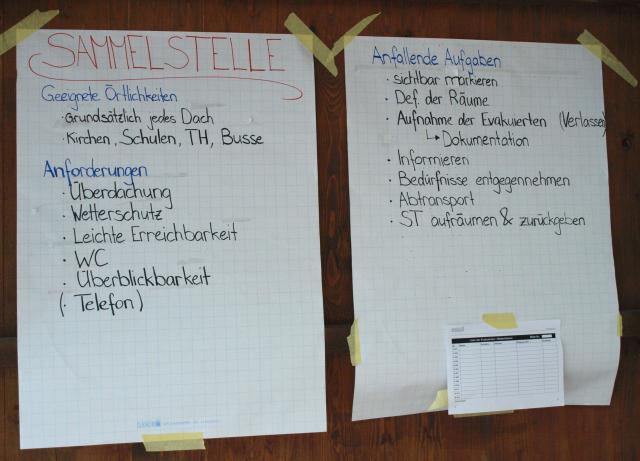 SAMMELSTELLE
Geeignete Örtlichkeiten
· Grundsätzlich jedes Dach
· Kirchen, Schulen, TH, Busse
Anforderungen
· Überdachung
· Wetterschutz
· Leichte Erreichbarkeit
· WC
· Überblickbarkeit
(· Telefon)
Anfallende Aufgaben
· sichtbar markieren
· Def. der Räume
· Aufnahme der Evakuierten (Verlasser)
↳ Dokumentation
· Informieren
· Bedürfnisse entgegennehmen
· Abtransport
· ST aufräumen & zurückgeben